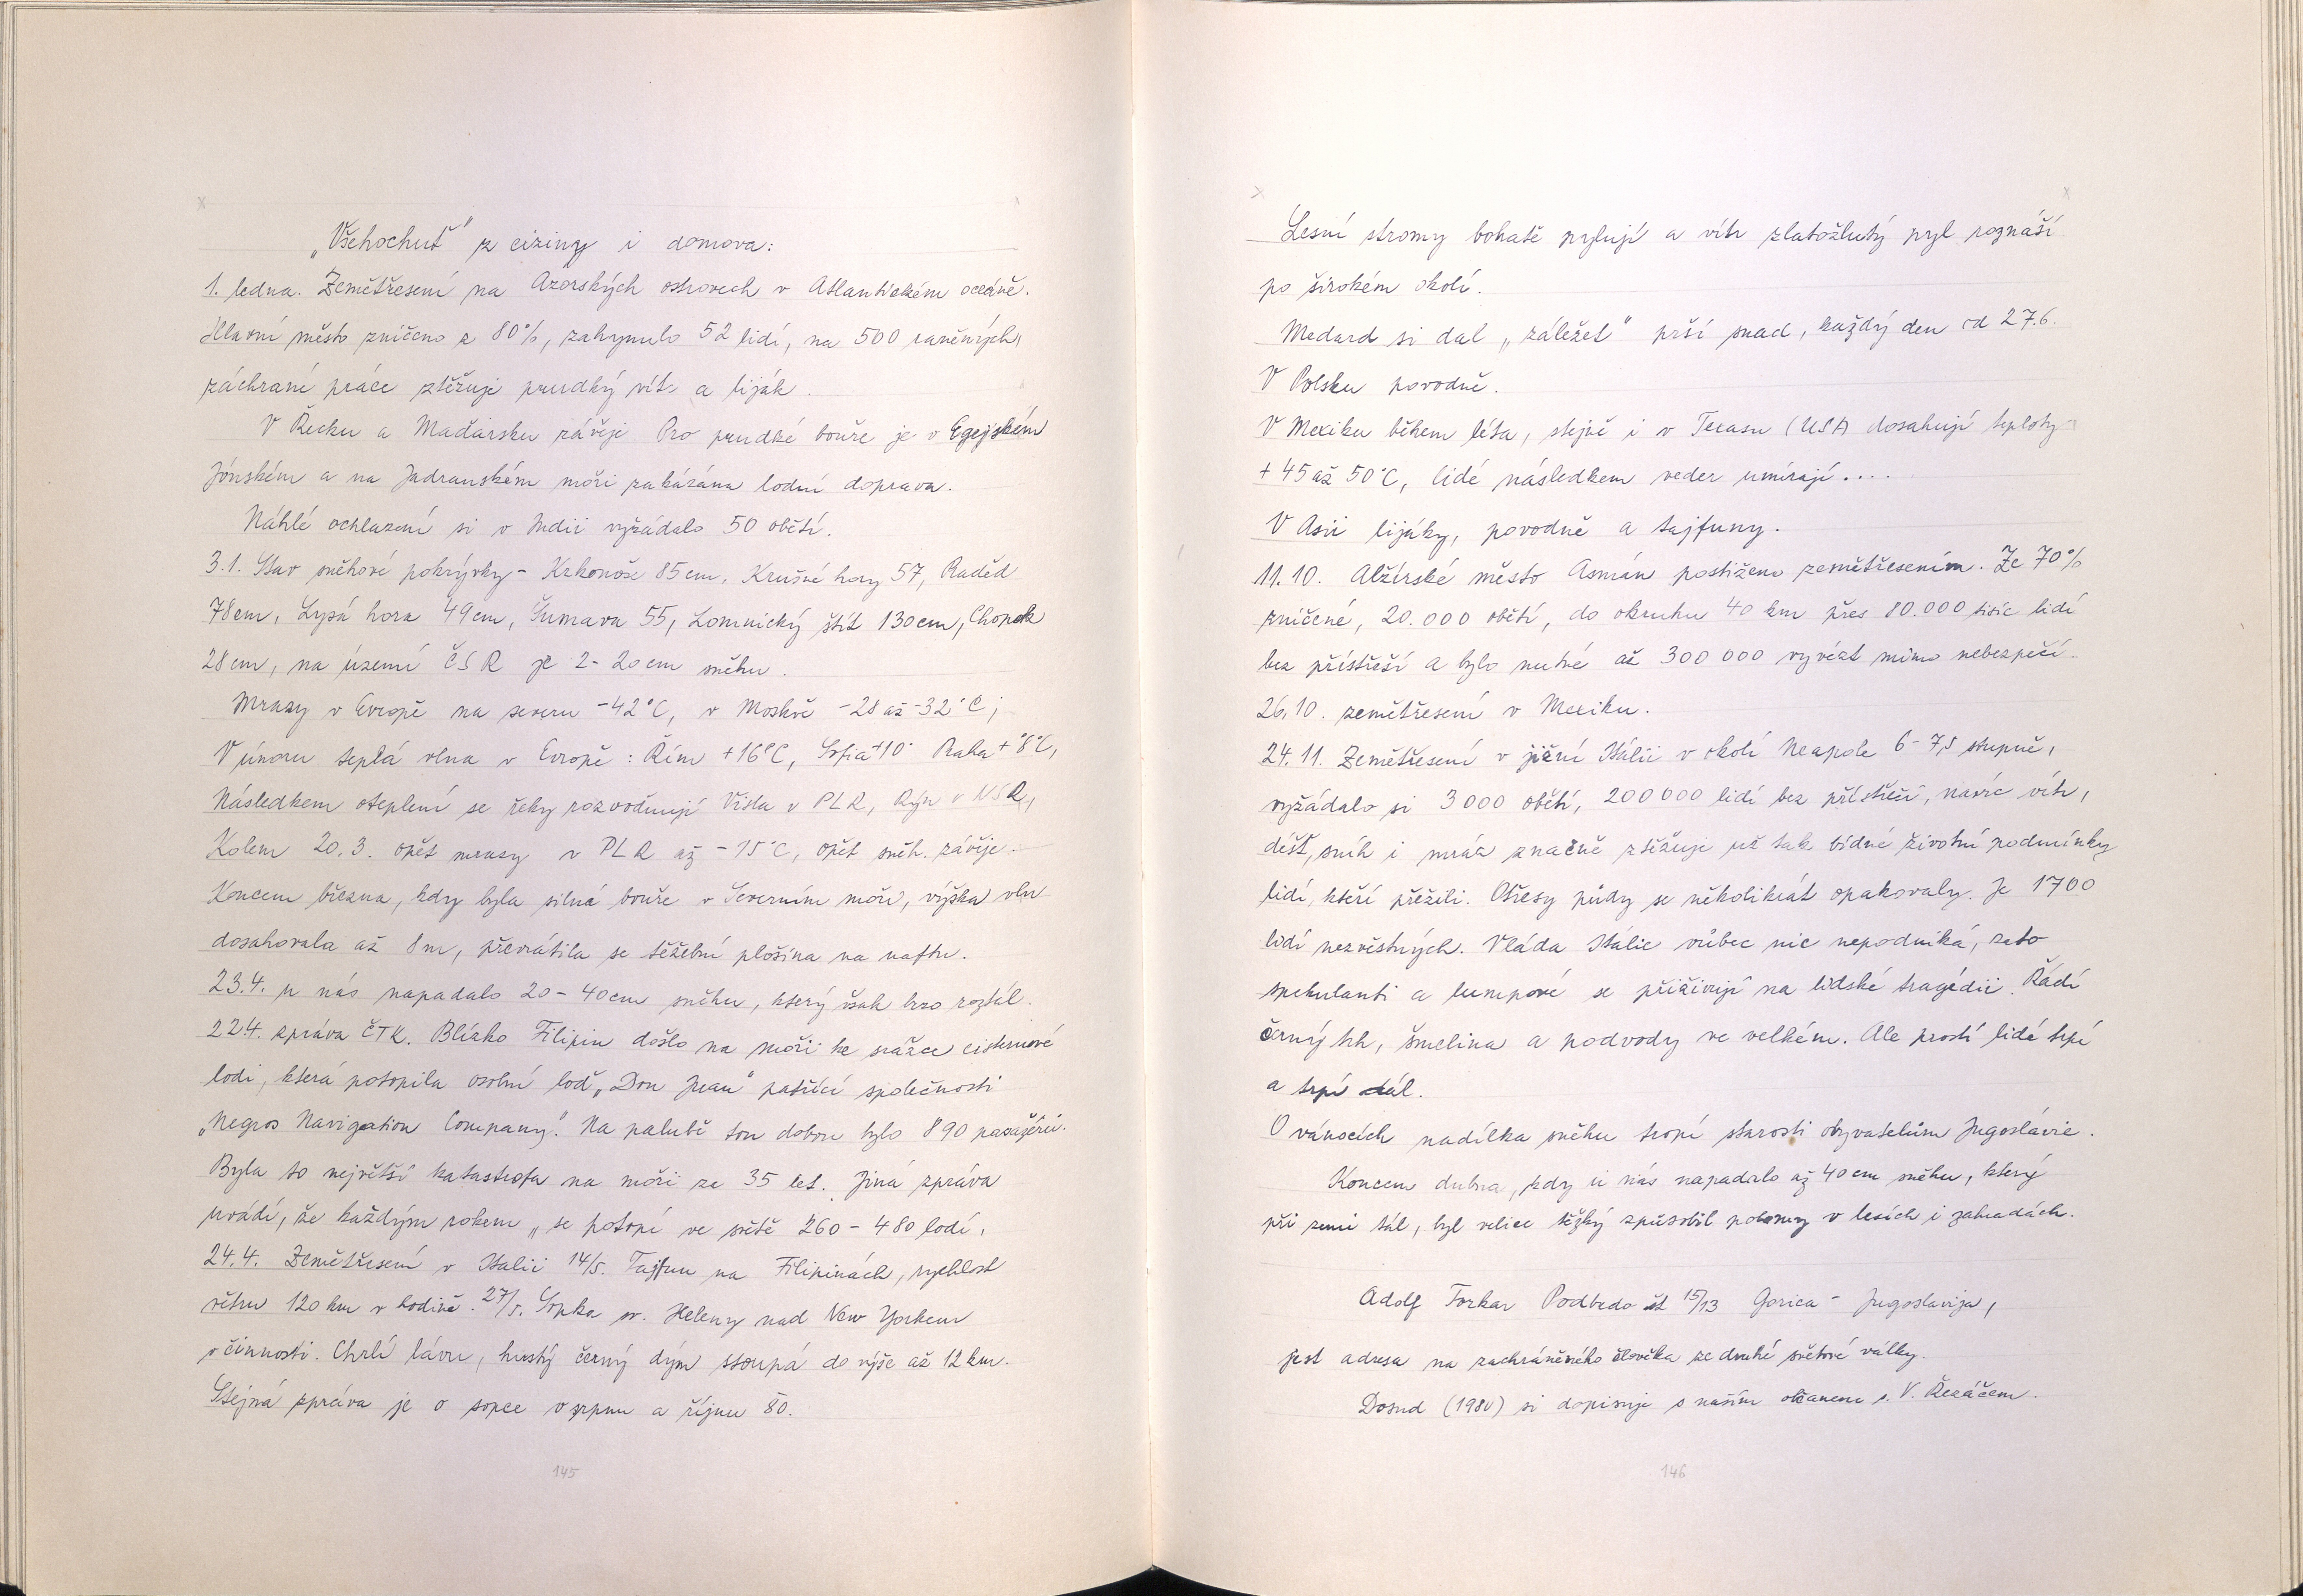 „Všehochuť" z ciziny i domova:
1. ledna. Zemětřesení na Azorských ostrovech v Atlantickém oceáně.
Hlavní město zničeno z 80%, zahynulo 52 lidí, na 500 raněných,
záchrané práce ztěžuje prudký vítr a liják.
V Řecku a Maďarsku závěje. Pro prudké bouře je v Egejském
Jónském a na Jadranském moři zakázána lodní doprava.
Náhlé ochlazení si v Indii vyžádalo 50 obětí.
3.1. Stav sněhové pokrývky - Krkonoše 85cm, Krušné hory 57, Praděd
78cm, Lysá hora 49cm, Šumava 55, Lomnický štít 130cm, Chopok
28cm, na území ČSR je 2-20cm sněhu.
Mrazy v Evropě na severu -42°C, v Moskvě -28 až -32°C;
V únoru teplá vlna v Evropě: Řím +16°C, Sofia +10° Praha +8°C,
Následkem oteplení se řeky rozvodňují Visla v PLR, Rýn v NSR,
Kolem 20.3. opět mrazy v PLR až -15°C, opět sněh. závěje.
Koncem března, kdy byla silná bouře v Severním moři, výška vln
dosahovala až 8m, převrátila se těžební plošina na naftu.
23.4. u nás napadalo 20-40cm sněhu, který však brzo roztál.
22.4. zpráva ČTK. Blízko Filipin došlo na moři ke srážce cisternové
lodi, která potopila osobní loď „Don Juan" patřící společnosti
„Negros Navigation Company". Na palubě tou dobou bylo 890 pasažérů.
Byla to největší katastrofa na moři za 35 let. Jiná zpráva
uvádí, že každým rokem „se potopí ve světě 260-480 lodí.
24.4. Zemětřesení v Italii 14/5. Tajfun na Filipinách, rychlost
větru 120 km v hodině. 27/5. Sopka sv. Heleny nad New Yorkem
v činnosti. Chrlí lávu, hustý černý dým stoupá do výše až 12 km.
Stejná zpráva je o sopce v srpnu a říjnu 80.
145
Lesní stromy bohatě pylují a vítr zlatožlutý pyl roznáší
po širokém okolí.
Medard si dal „záležet" prší snad, každý den od 27.6.
V Polsku povodně.
V Mexiku během léta, stejně i v Texasu (USA) dosahují teploty
+45 až 50°C, lidé následkem veder umírají....
V Asii lijáky, povodně a tajfuny.
11.10. Alžírské město Asmán postiženo zemětřesením. Ze 70%
zničené, 20.000 obětí, do okruhu 40 km přes 80.000 tisíc lidí
bez přístřeší a bylo nutné až 300 000 vyvézt mimo nebezpečí.
26.10. zemětřesení v Mexiku.
24.11. Zemětřesení v jižní Itálii v okolí Neapole 6-7,5 stupně,
vyžádalo si 3000 obětí, 200000 lidí bez přístřeší, navíc vítr,
déšť, sníh i mráz značně ztěžuje už tak bídné životní podmínky
lidí, kteří přežili. Otřesy půdy se několikrát opakovaly. Je 1700
lidí nezvěstných. Vláda Itálie vůbec nic nepodniká, zato
spekulanti a lumpové se přiživují na lidské tragédii. Řádí
černý trh, šmelina a podvody ve velkém. Ale prostí lidé trpí
a trpí dál.
O vánocích nadílka sněhu tropí starosti obyvatelům Jugoslávie.
Koncem dubna, kdy u nás napadalo až 40cm sněhu, který
při zemi tál, byl velice těžký způsobil polomy v lesích i zahradách.
Adolf Torkar Podbrdo št 15/13 Gorica - Jugoslavija,
jest adresa na zachráněného člověka ze druhé světové války.
Dosud (1980) si dopisuje s naším občanem s. V. Řezáčem.
146